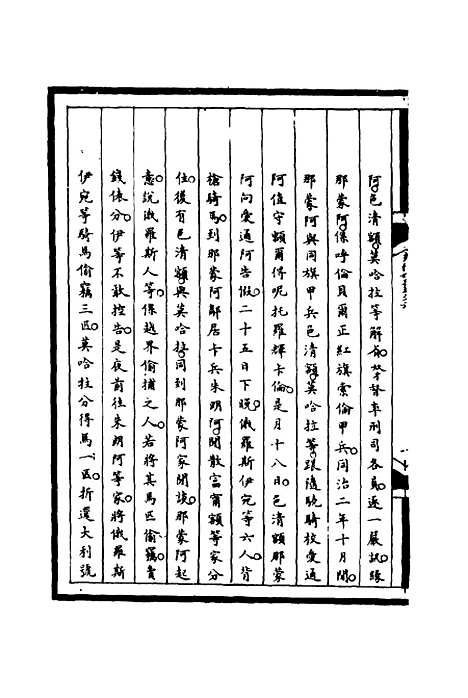 阿色清額莫哈拉等解省。卑督率刑司各員。逐一嚴訊。緣
那蒙阿。係呼倫貝爾正紅旗索倫甲兵。同治二年十月間。
那蒙阿與同旗甲兵色清額。莫哈拉等。跟隨驍騎校愛通
阿值守額爾得呢托羅輝卡倫。是月十八日。色清額那蒙
阿向愛通阿告假。二十五日下晚。俄羅斯伊宛等六人。背
槍騎馬。到那蒙阿鄰居卡兵朱朗阿。閒散富甯額等家分
住。後有色清額。與莫哈拉。同到那蒙阿家閒談。那蒙阿起
意。說俄羅斯人等。係越界偷捕之人。若將其馬匹偷竊。賣
錢俵分。伊等不敢控告。是夜前往朱朗阿等家。將俄羅斯
伊宛等騎馬偷竊三匹。莫哈拉分得馬一匹。折還大利號